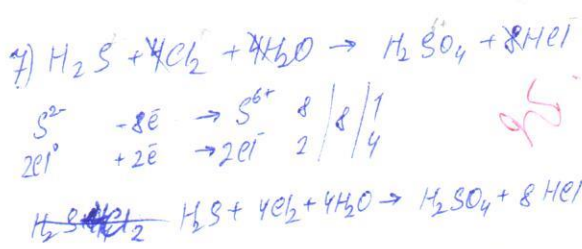 7) H₂S + 4Cl₂ + 4H₂O → H₂SO₄ + 8HCl
S²⁻ -8ē → S⁶⁺ 8 | 8 | 1
2Cl⁰ +2ē → 2Cl⁻ 2 | | 4
H₂S + 4Cl₂ + 4H₂O → H₂SO₄ + 8HCl